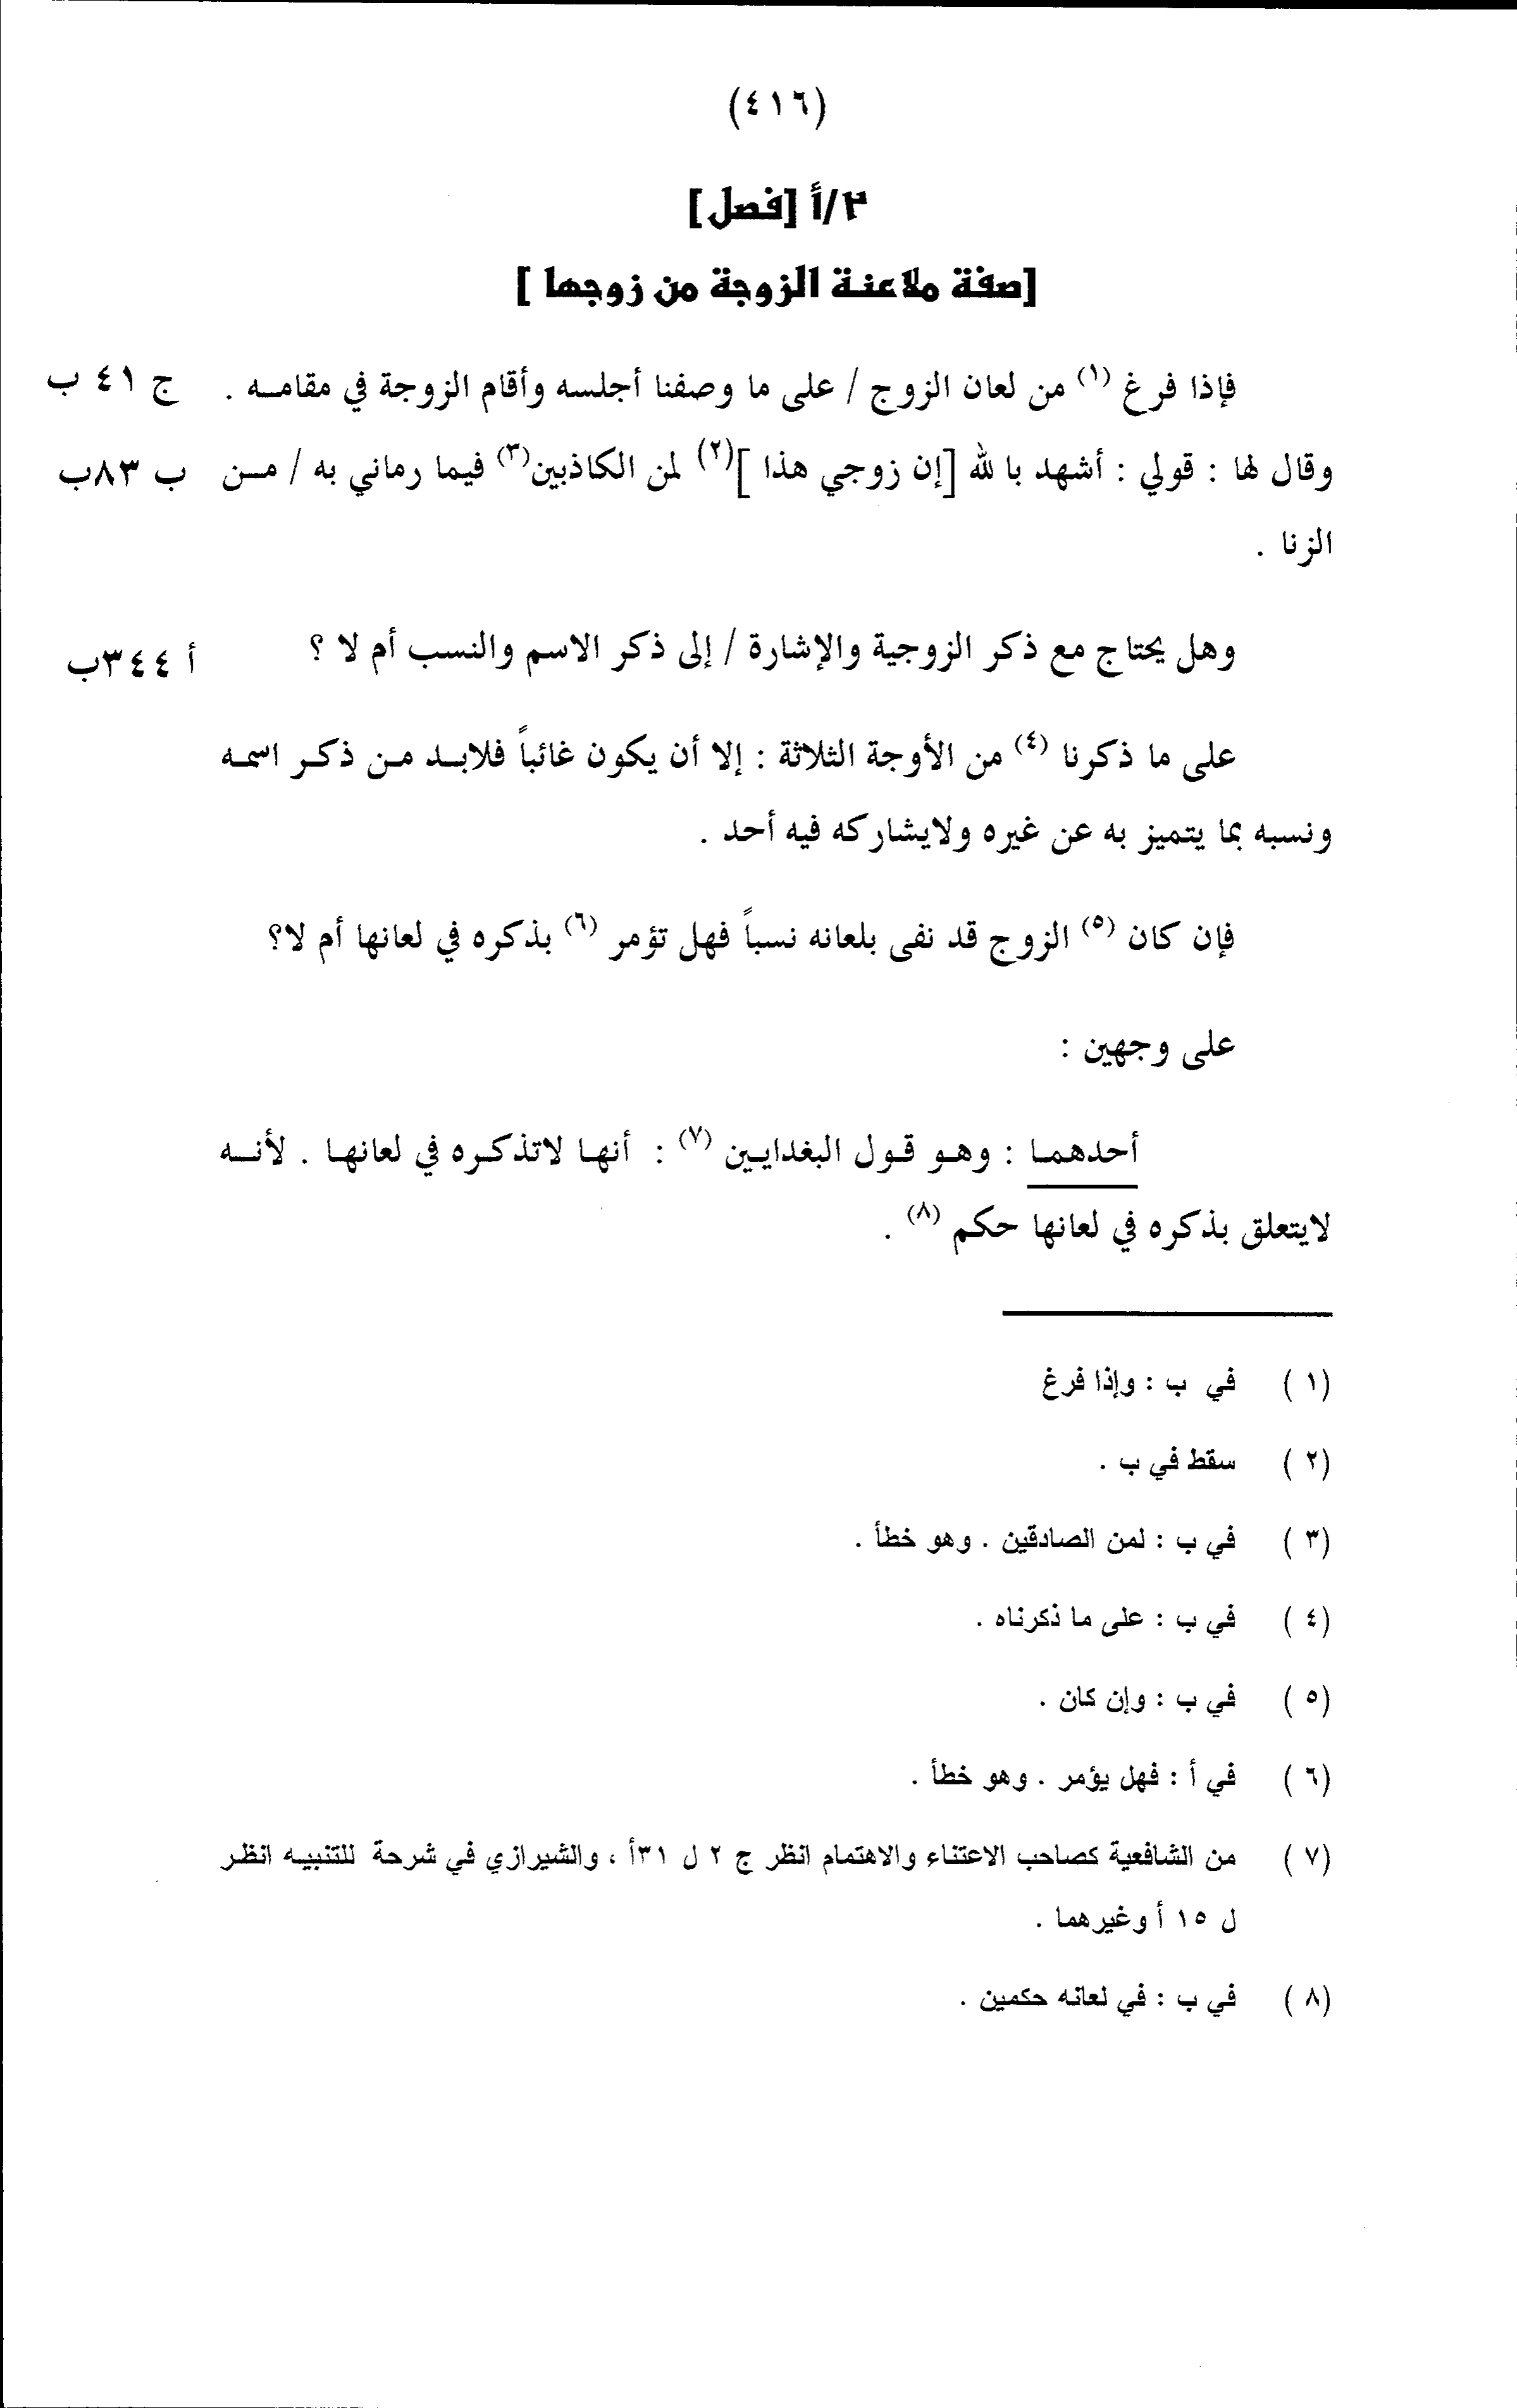 (٤١٦)
٣/أ [فصل]
[صفة ملاعنة الزوجة من زوجها ]
فإذا فرغ (١) من لعان الزوج / على ما وصفنا أجلسه وأقام الزوجة في مقامـه . ج ٤١ ب
وقال لها : قولي : أشهد با لله [إن زوجي هذا ](٢) لمن الكاذبين(٣) فيما رماني به / مـن ب ٨٣ب
الزنا .
وهل يحتاج مع ذكر الزوجية والإشارة / إلى ذكر الاسم والنسب أم لا ؟ أ ٣٤٤ب
على ما ذكرنا (٤) من الأوجة الثلاثة : إلا أن يكون غائباً فلابـد مـن ذكـر اسمـه
ونسبه بما يتميز به عن غيره ولايشاركه فيه أحد .
فإن كان (٥) الزوج قد نفى بلعانه نسباً فهل تؤمر (٦) بذكره في لعانها أم لا؟
على وجهين :
أحدهمـا : وهـو قـول البغدايـين (٧) : أنهـا لاتذكـره في لعانهـا . لأنـه
لايتعلق بذكره في لعانها حكم (٨) .
(١ ) في ب : وإذا فرغ
(٢ ) سقط في ب .
(٣ ) في ب : لمن الصادقين . وهو خطأ .
(٤ ) في ب : على ما ذكرناه .
(٥ ) في ب : وإن كان .
(٦ ) في أ : فهل يؤمر . وهو خطأ .
(٧ ) من الشافعية كصاحب الاعتناء والاهتمام انظر ج ٢ ل ٣١أ ، والشيرازي في شرحة للتنبيـه انظـر
ل ١٥ أ وغيرهما .
(٨ ) في ب : في لعانه حكمين .